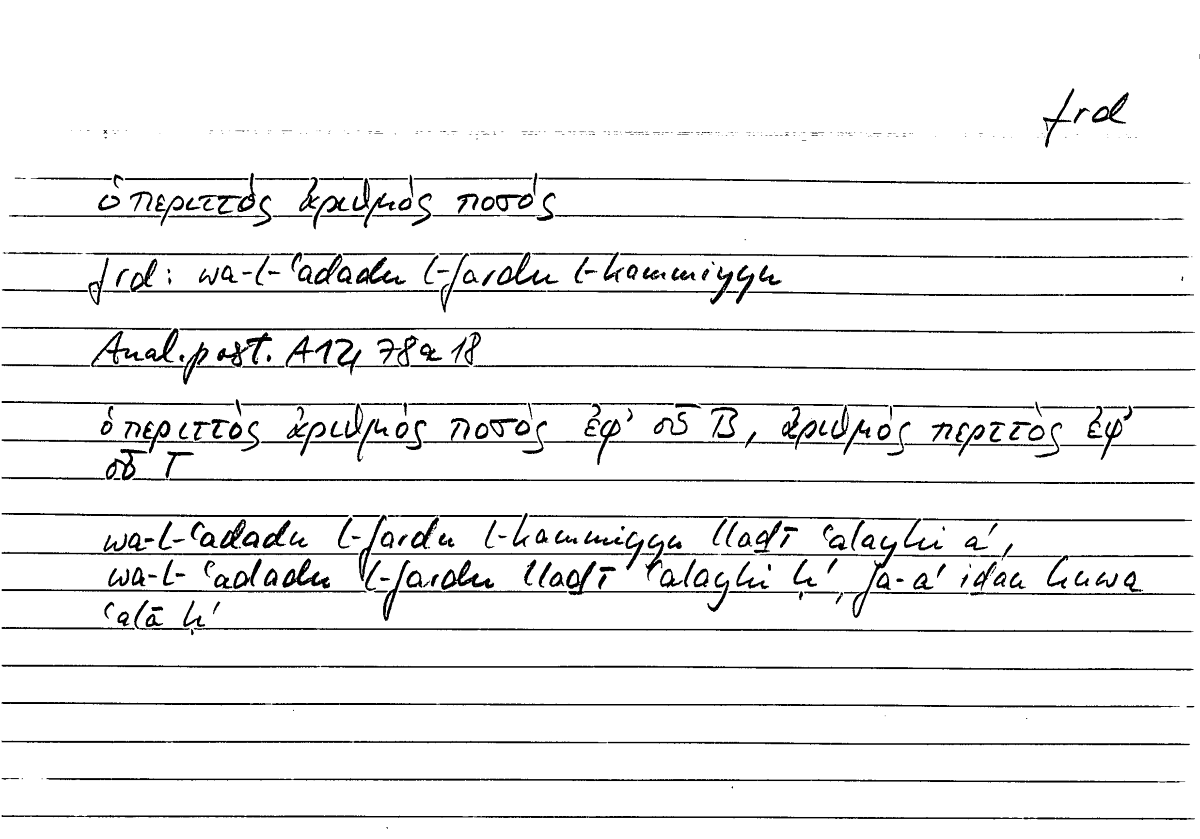 frd
ὁ περιττὸς ἀριθμὸς ποσός
frd: wa-l-ʿadadu l-fardu l-kammiyyu
Anal. post. A12, 78a18
ὁ περιττὸς ἀριθμὸς ποσὸς ἐφ' οὗ B, ἀριθμὸς περττὸς ἐφ'
οὗ Γ
wa-l-ʿadadu l-fardu l-kammiyyu lladī ʿalayhi á,
wa-l-ʿadadu l-fardu lladī ʿalayhi ḥ́, fa-á iḏan huwa
ʿalā ḥ́